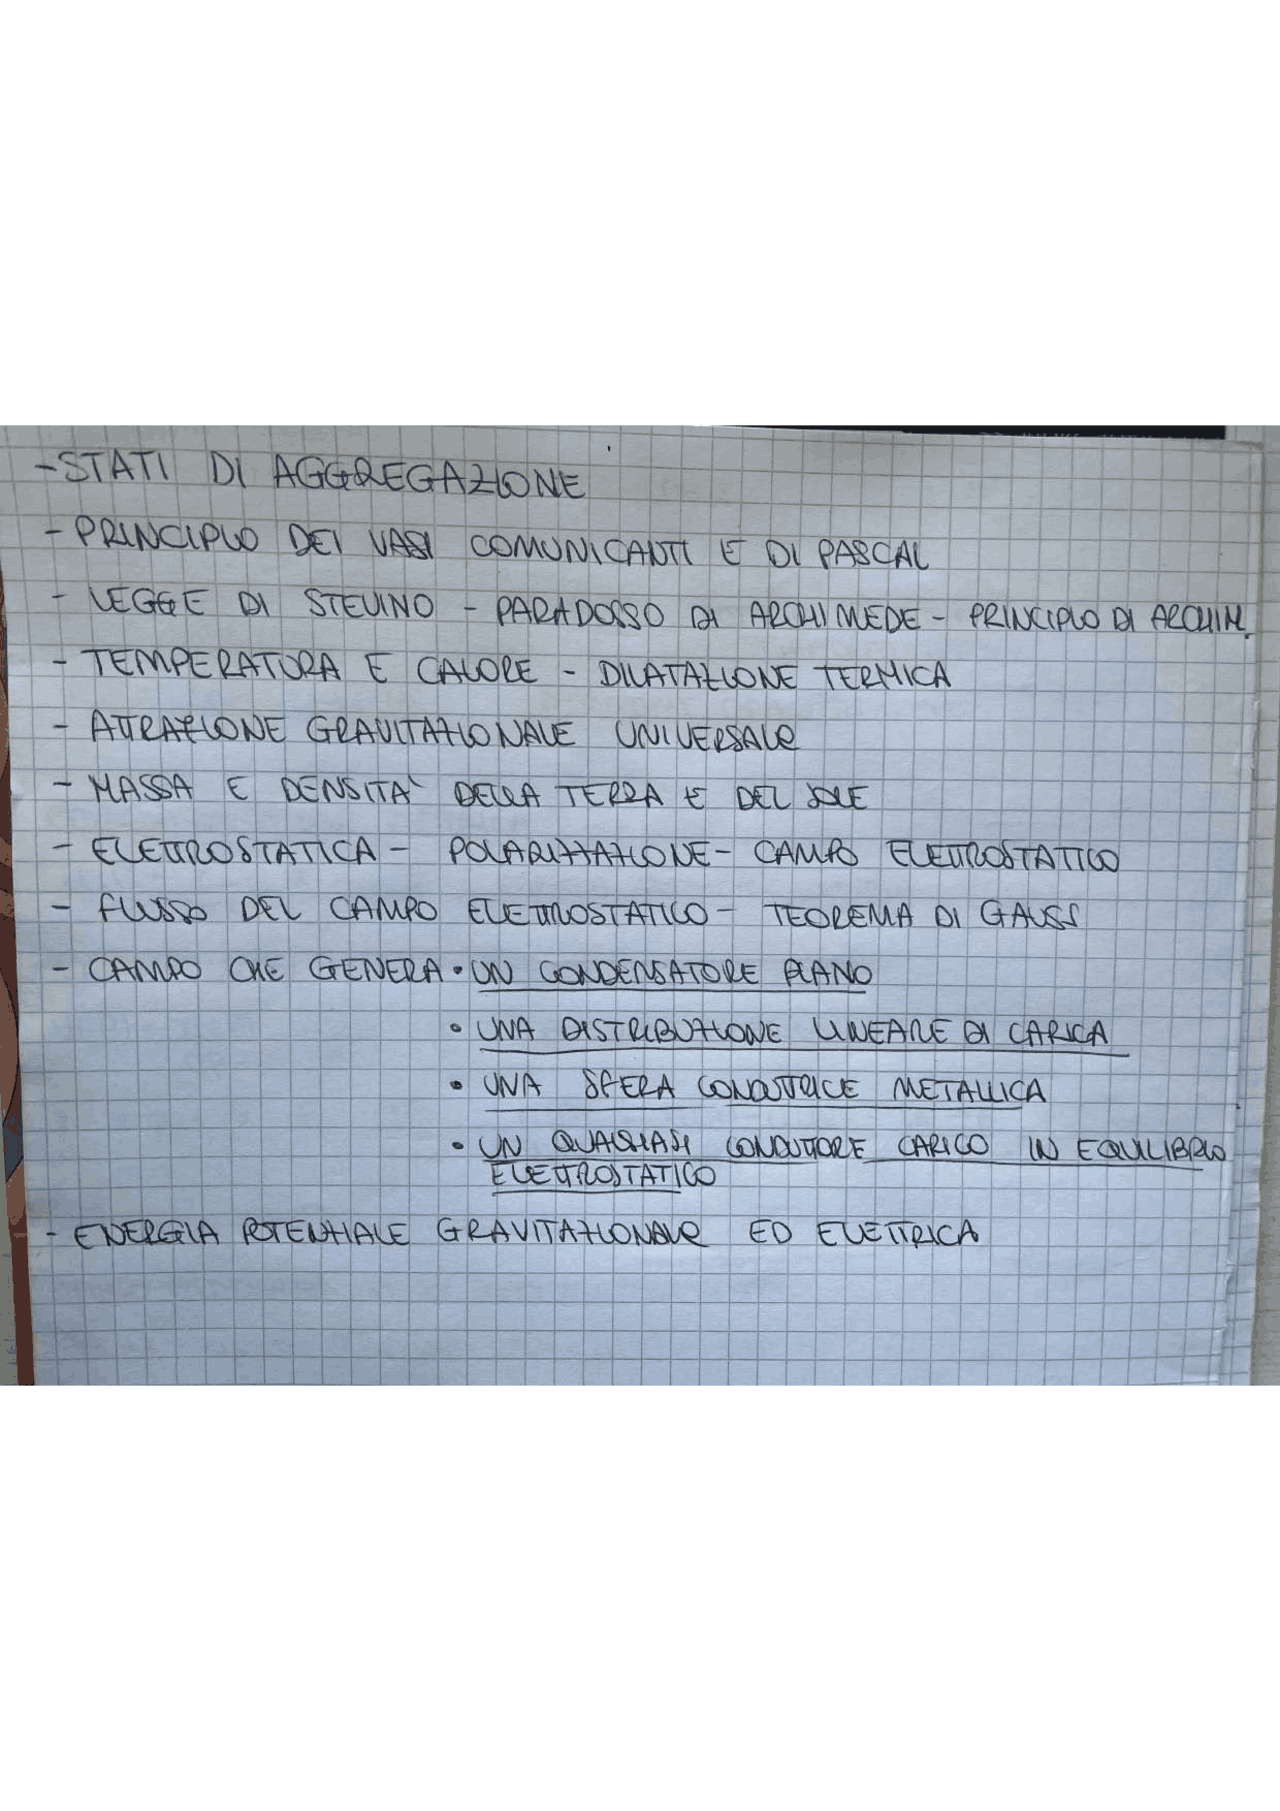 -STATI DI AGGREGAZIONE
- PRINCIPIO DEI VASI COMUNICANTI E DI PASCAL
- LEGGE DI STEVINO - PARADOSSO DI ARCHIMEDE - PRINCIPIO DI ARCHIM.
- TEMPERATURA E CALORE - DILATAZIONE TERMICA
- ATTRAZIONE GRAVITAZIONALE UNIVERSALE
- MASSA E DENSITA' DELLA TERRA E DEL SOLE
- ELETTROSTATICA - POLARIZZAZIONE - CAMPO ELETTROSTATICO
- FLUSSO DEL CAMPO ELETTROSTATICO - TEOREMA DI GAUSS
- CAMPO CHE GENERA • UN CONDENSATORE PIANO
• UNA DISTRIBUZIONE LINEARE DI CARICA
• UNA SFERA CONDUTTRICE METALLICA
• UN QUALSIASI CONDUTTORE CARICO IN EQUILIBRIO
ELETTROSTATICO
- ENERGIA POTENZIALE GRAVITAZIONALE ED ELETTRICA